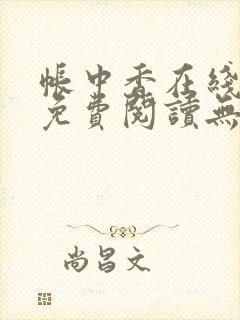 帳中香在綫
免費閱讀無
尚昌文